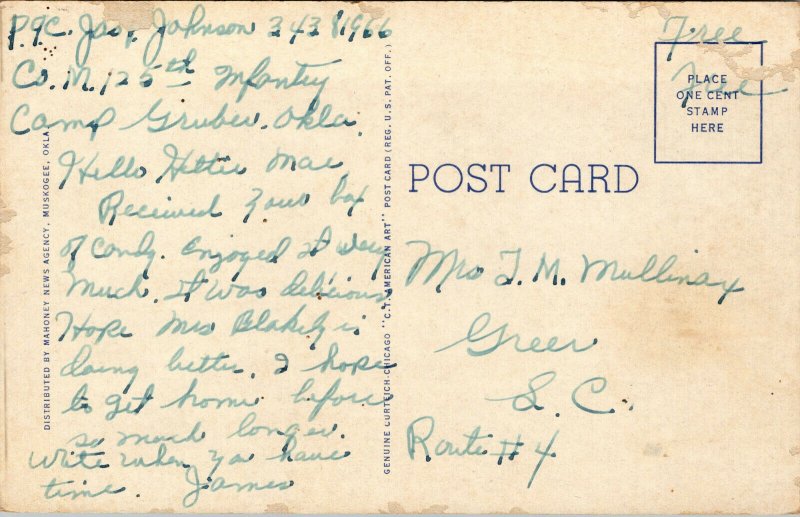 Pfc. Jas. Johnson 34381966
Co. M. 125th Infantry
Camp Gruber. Okla.
Hello Hettie Mae
Received your box
of candy. Enjoyed it very
much. it was delicious
Hope Mrs Blakely is
doing better. I hope
to get home before
so much longer.
write when you have
time. James
DISTRIBUTED BY MAHONEY NEWS AGENCY, MUSKOGEE, OKLA.
GENUINE CURTEICH-CHICAGO "C.T. AMERICAN ART" POST CARD (REG. U.S. PAT. OFF.)
Free
Free
PLACE
ONE CENT
STAMP
HERE
POST CARD
Mrs J. M. Mullinax
Greer
S. C.
Route # 4